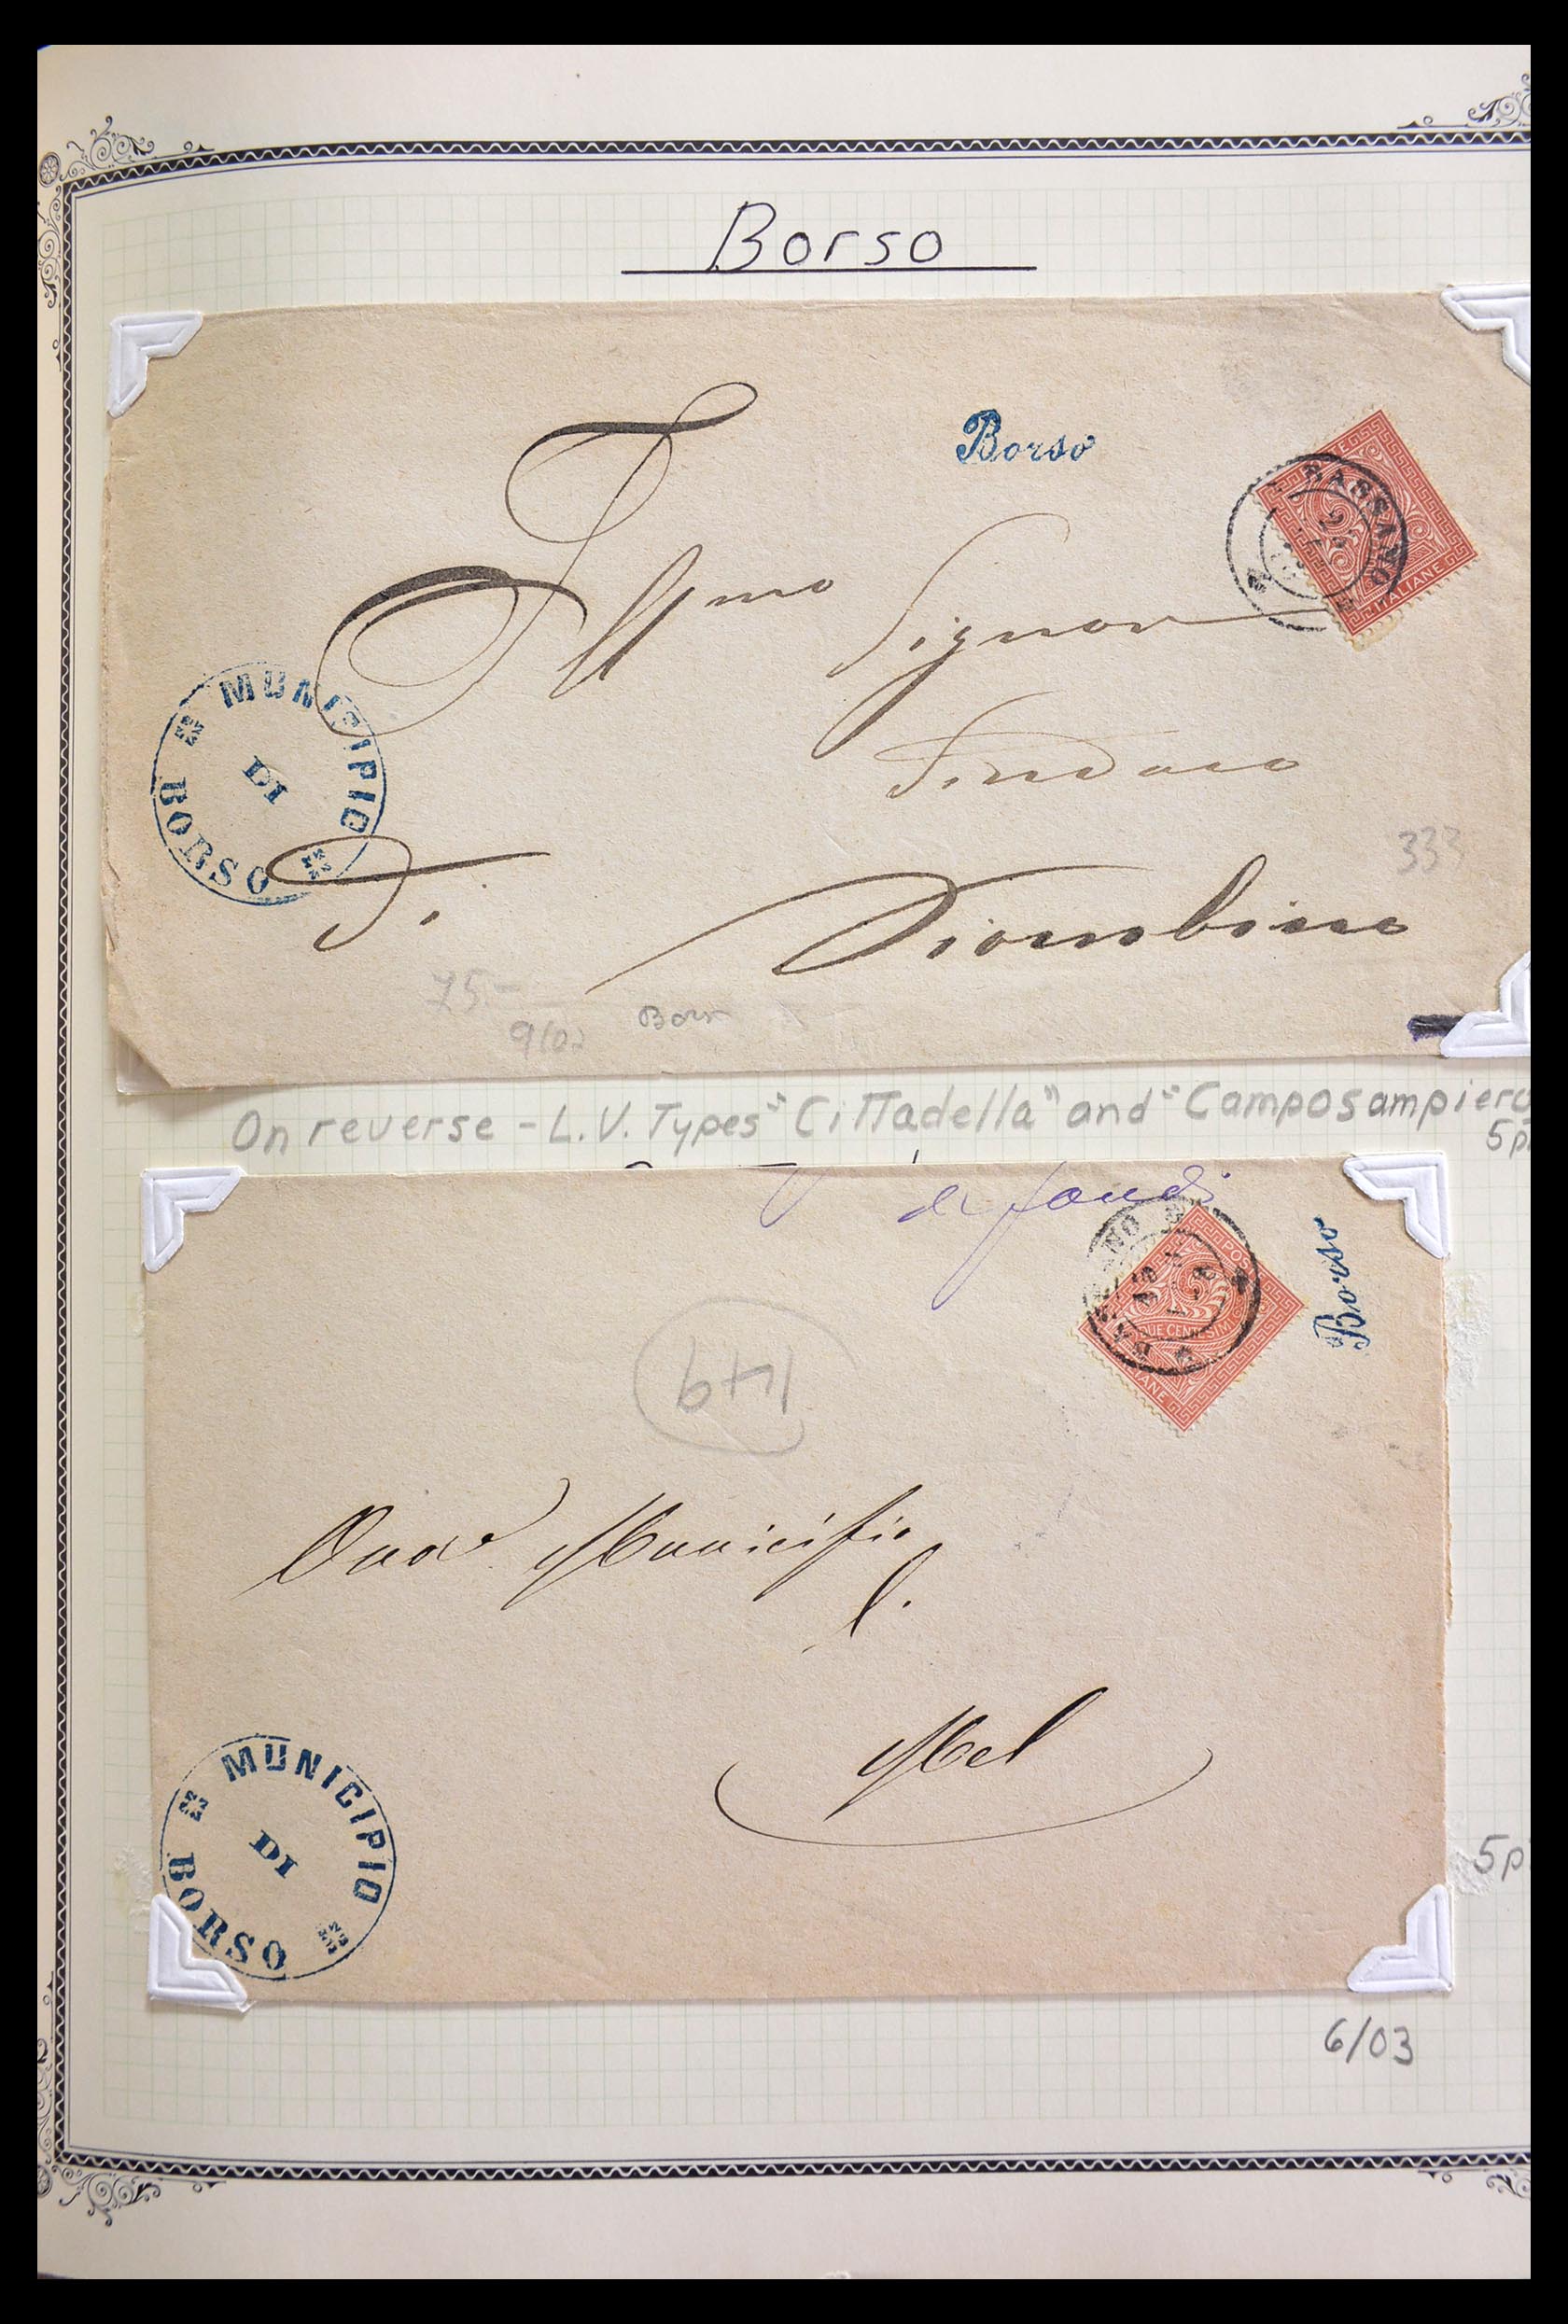 Borso
Borso
BASSANO
ITALIANE
Illmo Signor
Sindaco
MUNICIPIO
DI
BORSO
333
di Piombino
75-
9/02
On reverse - L.V. Types "Cittadella" and "Camposampiero
5p
di fondi
Borso
POS
QUE CENTESIMI
IANE
149
Onor Municipio
Mel
MUNICIPIO
DI
BORSO
5p
6/03